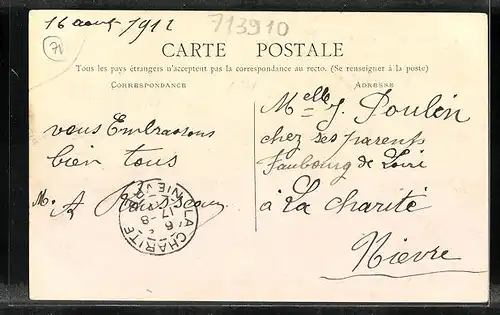 16 aout 1912
713910
71
CARTE POSTALE
Tous les pays étrangers n'acceptent pas la correspondance au recto. (Se renseigner à la poste)
CORRESPONDANCE
ADRESSE
Melle J. Poulin
chez ses parents
Faubourg de Loire
à La charité
Nièvre
vous Embrassons
bien tous
M. A Rousseau
LA CHARITE
NIEVRE
17-8